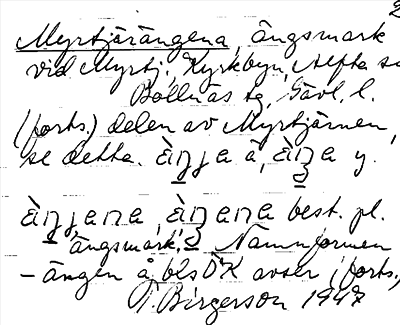 Myrtjärängena, ängsmark
vid Myrtj., Kyrkbyn, Alfta sn
Bollnäs tg, Gävl. l.
(forts.) delen av Myrtjärnen,
se detta. y.
best. pl.
ängsmark. Namnformen
-ängen å bl. ÖK avser (forts.)
J. Birgerson 1947